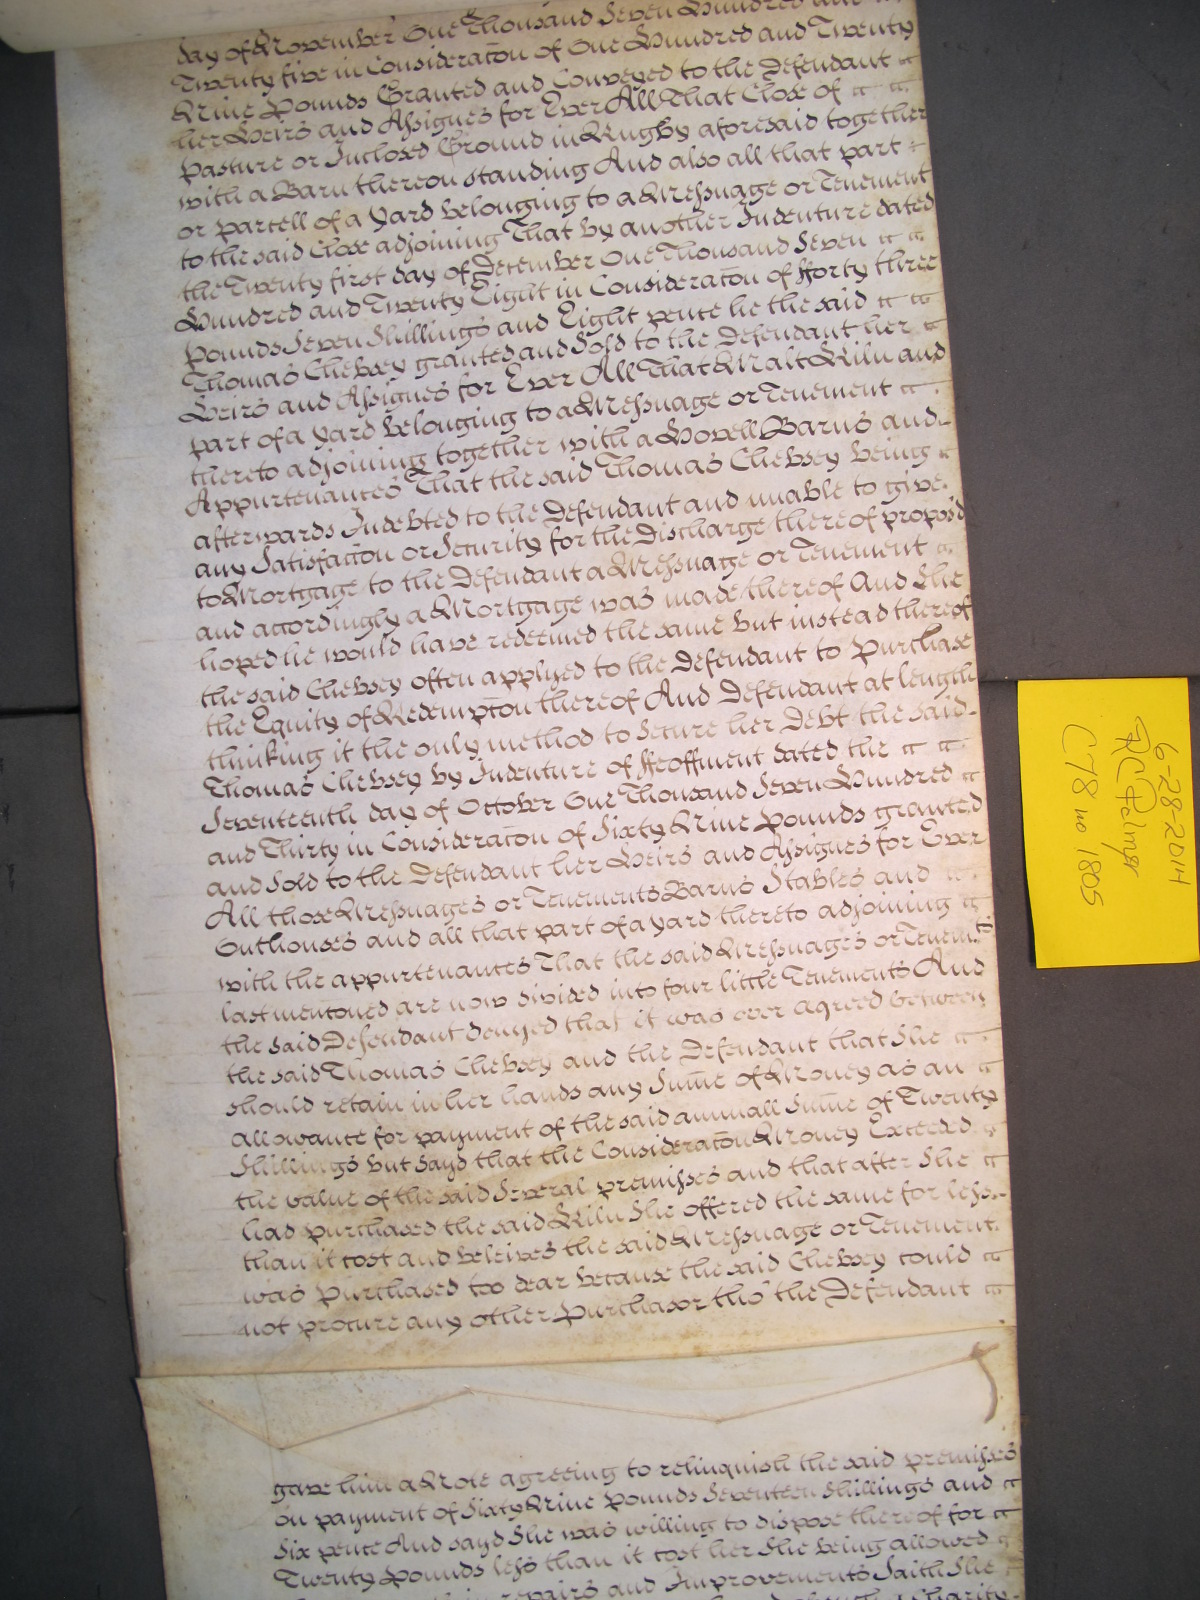 day of November One Thousand Seven Hundred and
Twenty five in Consideracõn of One Hundred and Twenty
Nine Pounds Granted and Conveyed to the Defendant
her Heirs and Assignes for Ever All That Close of
Pasture or Inclosed Ground in Rugby aforesaid together
with a Barn thereon standing And also all that part
or parcell of a Yard belonging to a Messuage or Tenement
to the said Close adjoining That by another Indenture dated
the Twenty first day of December One Thousand Seven
Hundred and Twenty Eight in Consideracõn of fforty three
Pounds Seven Shillings and Eight pence he the said
Thomas Chebsey granted and Sold to the Defendant her
Heirs and Assignes for Ever All That Malt Kiln and
part of a Yard belonging to a Messuage or Tenement
thereto adjoining together with a Hovell Barns and
Appurtenances That the said Thomas Chebsey being
afterwards Indebted to the Defendant and unable to give
any Satisfaccõn or Security for the Discharge thereof propos'd
to Mortgage to the Defendant a Messuage or Tenement
and accordingly a Mortgage was made thereof And She
hoped he would have redeemed the same but instead thereof
the said Chebsey often applyed to the Defendant to Purchase
the Equity of Redempc̃on thereof And Defendant at length
thinking it the only method to Secure her Debt the said
Thomas Chebsey by Indenture of ffeoffment dated the
Seventeenth day of October One Thousand Seven Hundred
and Thirty in Consideracõn of Sixty Nine Pounds granted
and Sold to the Defendant her Heirs and Assignes for Ever
All those Messuages or Tenements Barns Stables and
Outhouses and all that part of a yard thereto adjoining
with the appurtenances That the said Messuages or Tenemts
last menc̃oned are now divided into four little Tenements And
the said Defendant denyed that it was ever agreed between
the said Thomas Chebsey and the Defendant that She
should retain in her hands any Sum̃e of Money as an
allowance for payment of the said annuall Sum̃e of Twenty
Shillings but sayd that the Consideracõn Money Exceeded
the value of the said Several premisses and that after She
had purchased the said Kiln She offered the same for less
than it cost and beleives the said Messuage or Tenement
was Purchased too dear because the said Chebsey could
not procure any other Purchasor tho' the Defendant
gave him a Note agreeing to relinquish the said premisses
on payment of Sixty Nine Pounds Seventeen Shillings and
Six pence And sayd She was willing to dispose thereof for
Twenty Pounds less than it cost her She being allowed
repairs and Improvements Saith She
Charity
6-28-2014
C78 no 1805